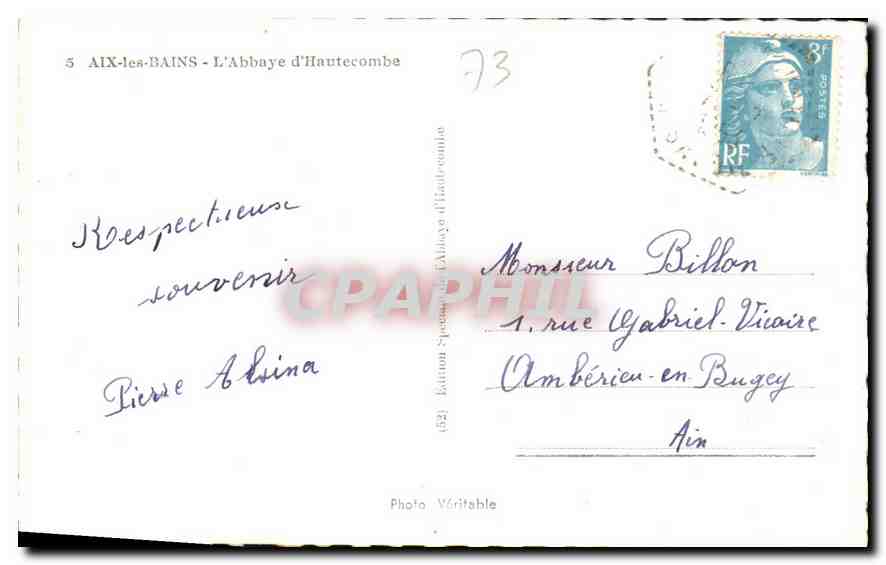 5 AIX-les-BAINS - L'Abbaye d'Hautecombe
73
8F
POSTES
RF
Respectueux
souvenir
Pierre Alsina
(52) Edition Spéciale de l'Abbaye d'Hautecombe
CPAPHIL
Monsieur Billon
1, rue Gabriel-Vicaire
Ambérieu-en-Bugey
Ain
Photo Véritable